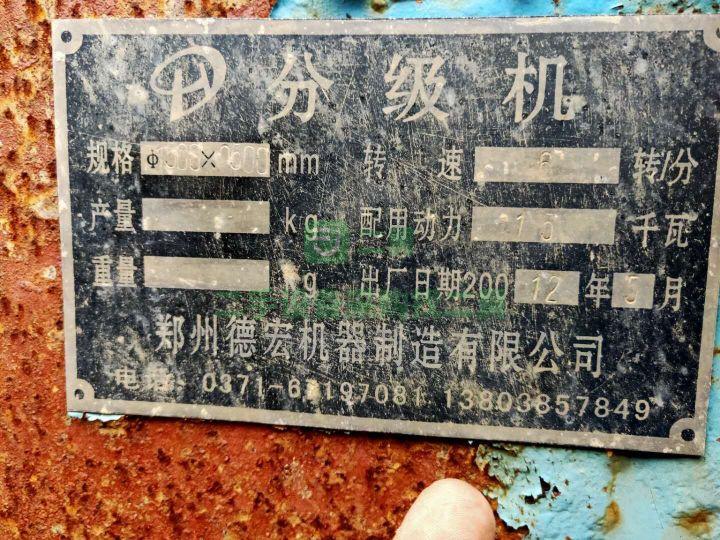 分级机
规格 mm 转速 转/分
产量 kg 配用动力 15 千瓦
重量 kg 出厂日期200 12 年 5 月
郑州德宏机器制造有限公司
电话: 13803857849